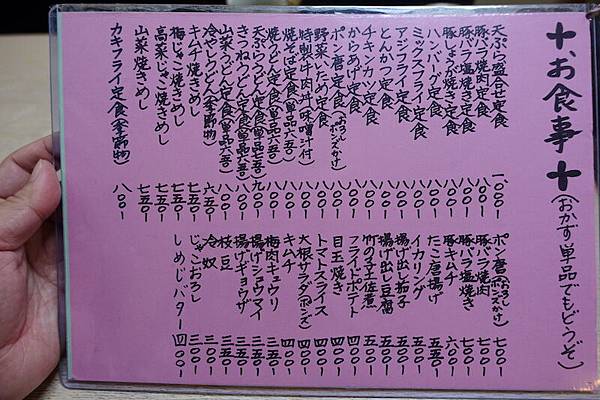 十、お食事十(おかず単品でもどうぞ)
天ぷら盛合せ定食 一、〇〇〇-
豚バラ焼肉定食 八〇〇-
豚バラ塩焼き定食 八〇〇-
豚しょうが焼き定食 八〇〇-
ハンバーグ定食 八〇〇-
ミックスフライ定食 八〇〇-
アジフライ定食 八〇〇-
とんかつ定食 八〇〇-
チキンカツ定食 八〇〇-
からあげ定食 八〇〇-
ポン唐定食(おろしポンズかけ) 八〇〇-
野菜いため定食 八〇〇-
特製牛肉汁・味噌汁付 八〇〇-
焼そば定食(単品六五〇) 八〇〇-
焼うどん定食(単品六五〇) 八〇〇-
天ぷらうどん定食(単品七五〇) 九〇〇-
きつねうどん定食(単品六五〇) 八〇〇-
山菜うどん定食(単品六五〇) 八〇〇-
冷やしうどん(季節物) 六五〇-
キムチ焼きめし 七五〇-
梅じゃこ焼きめし 七五〇-
高菜じゃこ焼きめし 七五〇-
山菜焼きめし 七五〇-
カキフライ定食(季節物) 八〇〇-
ポン唐(おろしポンズかけ) 七〇〇-
豚バラ焼肉 七〇〇-
豚バラ塩焼き 七〇〇-
豚キムチ 六〇〇-
たこ唐揚げ 五五〇-
イカリング 五〇〇-
揚げ出し茄子 五〇〇-
揚げ出し豆腐 五〇〇-
竹の子土佐煮 五〇〇-
フライドポテト 四〇〇-
目玉焼き 四〇〇-
トマトスライス 四〇〇-
大根サラダ(ポンズ) 四〇〇-
キムチ 四〇〇-
梅肉キュウリ 三五〇-
揚げシュウマイ 三五〇-
揚げギョウザ 三五〇-
枝豆 三五〇-
冷奴 三〇〇-
じゃこおろし 三〇〇-
しめじバター 四〇〇-